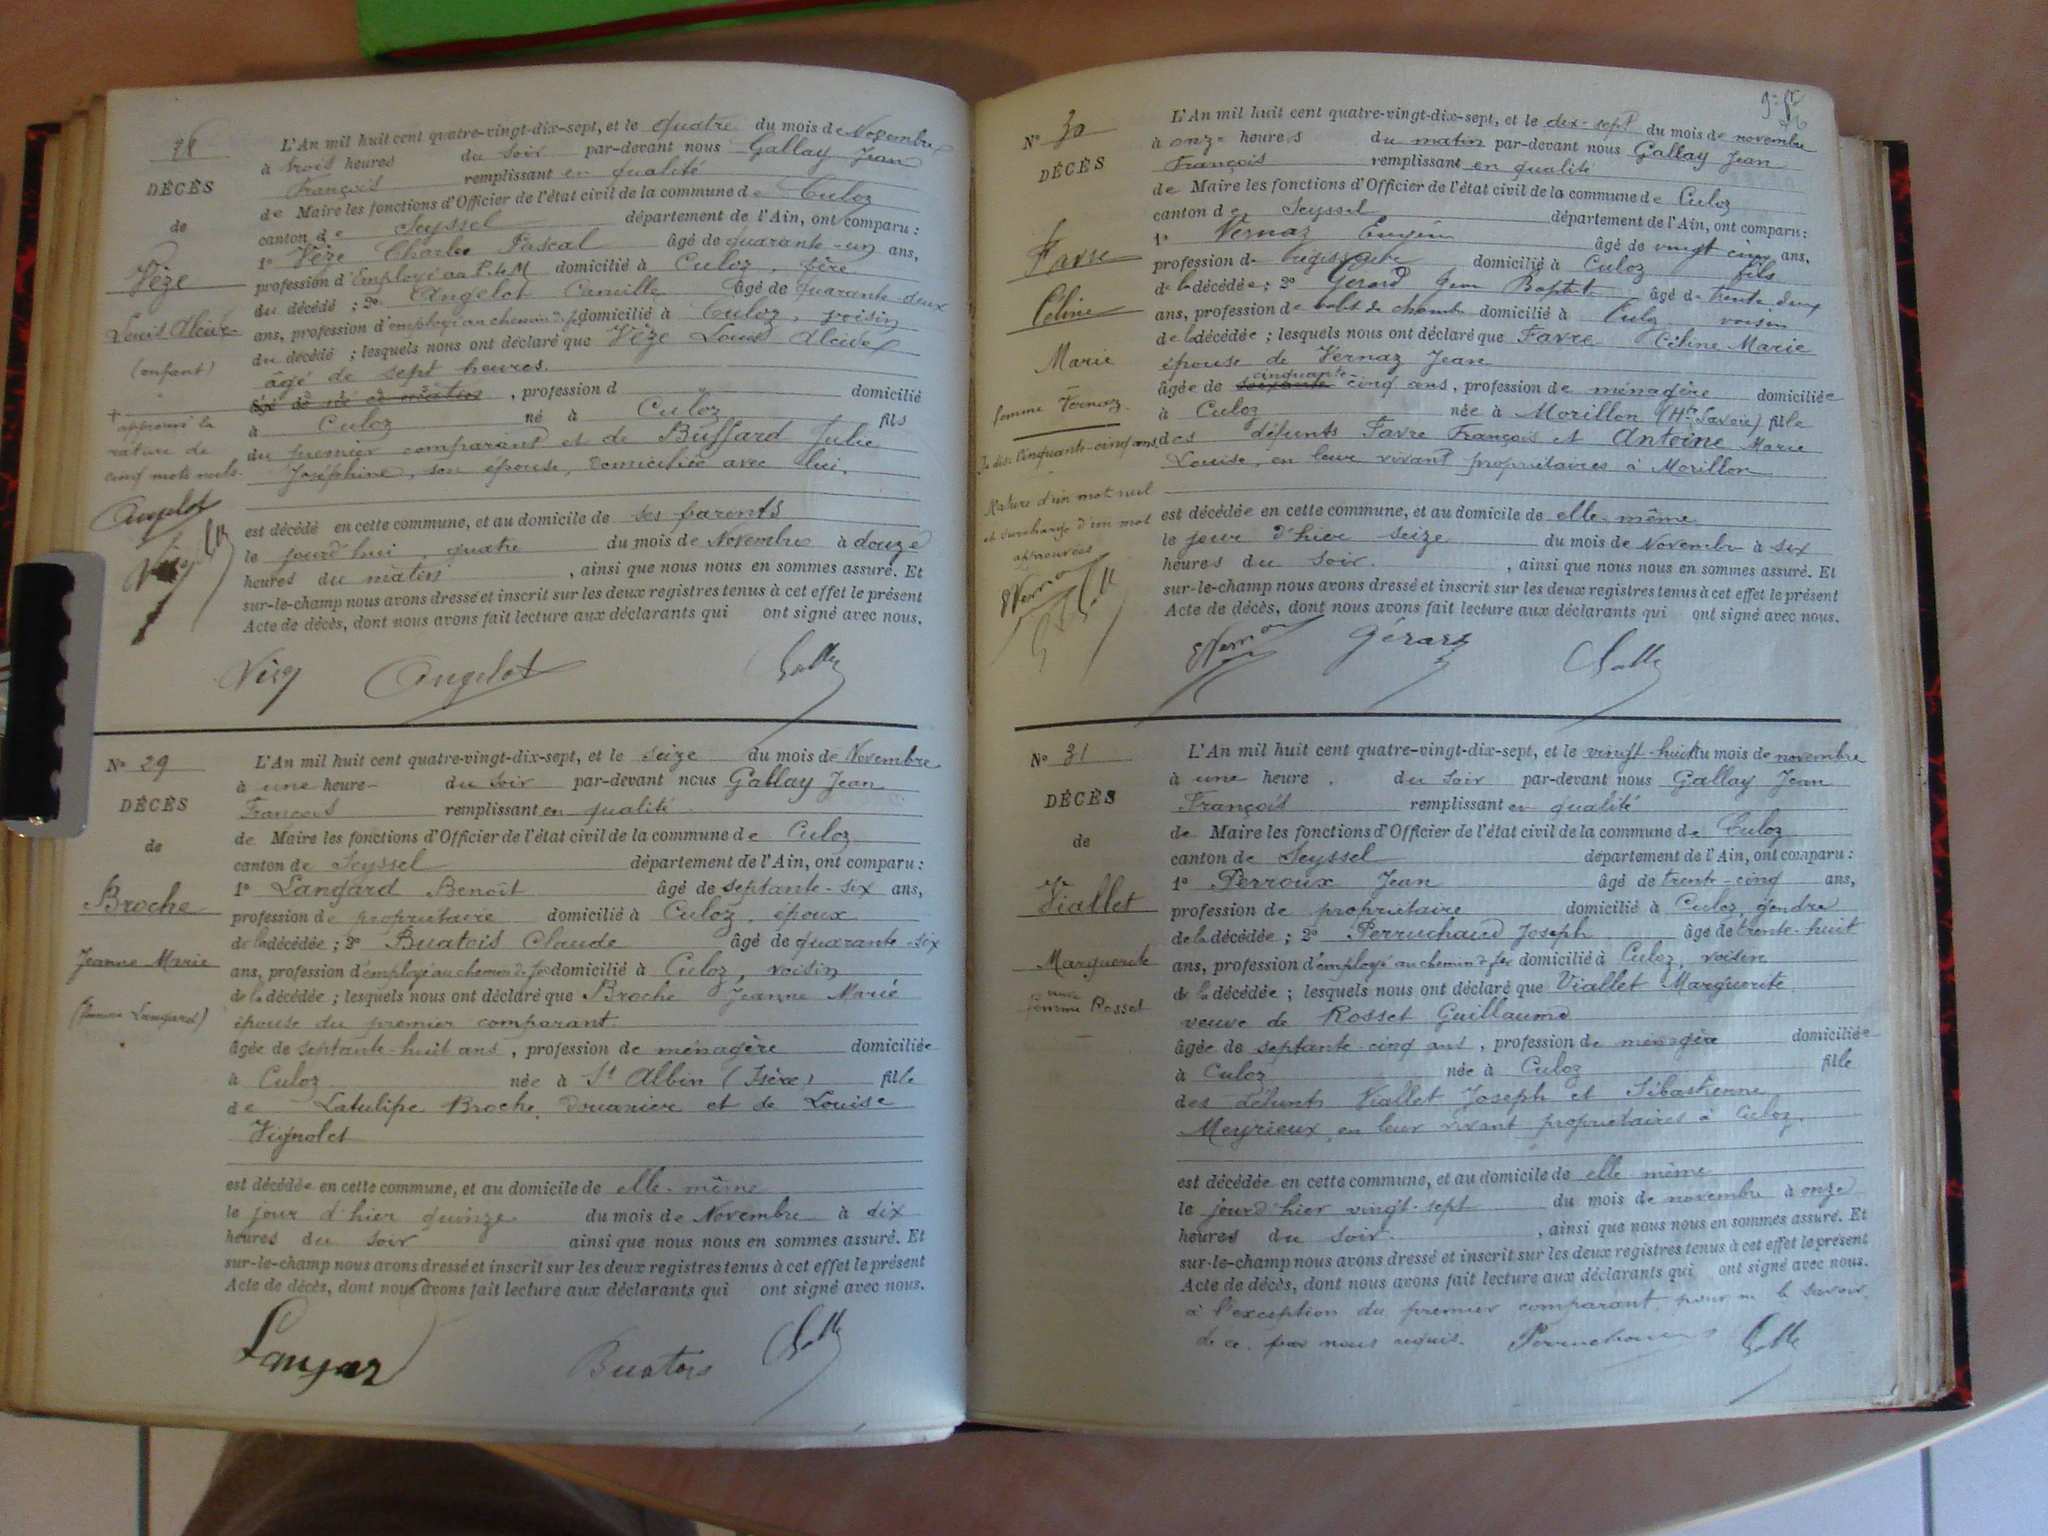 28
DÉCÈS
de
Vèze
Louis Alcide
(enfant)
+ approuvé la
rature de
cinq mots nuls.
Angelot
L'An mil huit cent quatre-vingt-dix-sept, et le quatre du mois de Novembre
à trois heures du soir par-devant nous Gallay Jean
François remplissant en qualité
de Maire les fonctions d'Officier de l'état civil de la commune de Culoz
canton de Seyssel département de l'Ain, ont comparu :
1° Vèze Charles Pascal âgé de quarante-un ans,
profession d'Employé au P.L.M domicilié à Culoz, père
du décédé ; 2° Angelot Camille âgé de quarante-deux
ans, profession d'employé au chemin de fer domicilié à Culoz, voisin
du décédé ; lesquels nous ont déclaré que Vèze Louis Alcide
âgé de sept heures.
, profession d " domicilié
à Culoz né à Culoz fils
du premier comparant et de Buffard Julie
Joséphine, son épouse, domiciliée avec lui.
est décédé en cette commune, et au domicile de ses parents
le jourd'hui, quatre du mois de Novembre à douze
heures du matin , ainsi que nous nous en sommes assuré. Et
sur-le-champ nous avons dressé et inscrit sur les deux registres tenus à cet effet le présent
Acte de décès, dont nous avons fait lecture aux déclarants qui ont signé avec nous.
Angelot
N° 29
DÉCÈS
de
Broche
Jeanne Marie
(femme Langard)
L'An mil huit cent quatre-vingt-dix-sept, et le seize du mois de Novembre
à une heure du soir par-devant nous Gallay Jean
François remplissant en qualité
de Maire les fonctions d'Officier de l'état civil de la commune de Culoz
canton de Seyssel département de l'Ain, ont comparu :
1° Langard Benoît âgé de septante-six ans,
profession de propriétaire domicilié à Culoz, époux
de la décédée ; 2° Buatois Claude âgé de quarante-six
ans, profession d'employé au chemin de fer domicilié à Culoz, voisin
de la décédée ; lesquels nous ont déclaré que Broche Jeanne Marie
épouse du premier comparant.
âgée de septante-huit ans, profession de ménagère domiciliée
à Culoz née à St Albin (Isère) fille
de Latulipe Broche, douanier et de Louise
Vignolet
est décédée en cette commune, et au domicile de elle-même
le jour d'hier quinze du mois de Novembre à dix
heures du soir ainsi que nous nous en sommes assuré. Et
sur-le-champ nous avons dressé et inscrit sur les deux registres tenus à cet effet le présent
Acte de décès, dont nous avons fait lecture aux déclarants qui ont signé avec nous.
Langar Buatois
N° 30
DÉCÈS
Favre
Céline
Marie
femme Vernaz
Je dis: Cinquante-cinq ans
Rature d'un mot nul
et surcharge d'un mot
approuvées
L'An mil huit cent quatre-vingt-dix-sept, et le dix-sept du mois de novembre
à onze heures du matin par-devant nous Gallay Jean
François remplissant en qualité
de Maire les fonctions d'Officier de l'état civil de la commune de Culoz
canton de Seyssel département de l'Ain, ont comparu :
1° Vernaz Eugène âgé de vingt cinq ans,
profession de domicilié à Culoz fils
de la décédée ; 2° Gérard Jean Baptiste âgé de trente deux
ans, profession de domicilié à Culoz voisin
de la décédée ; lesquels nous ont déclaré que Favre Céline Marie
épouse de Vernaz Jean
âgée de soixante cinquante-cinq ans, profession de ménagère domiciliée
à Culoz née à Morillon (Hte Savoie) fille
des défunts Favre François et Antoine Marie
Louise, en leur vivant propriétaires à Morillon
est décédée en cette commune, et au domicile de elle-même
le jour d'hier seize du mois de Novembre à six
heures du soir. , ainsi que nous nous en sommes assuré. Et
sur-le-champ nous avons dressé et inscrit sur les deux registres tenus à cet effet le présent
Acte de décès, dont nous avons fait lecture aux déclarants qui ont signé avec nous.
Gérard
N° 31
DÉCÈS
de
Viallet
Marguerite
veuve
femme Rosset
L'An mil huit cent quatre-vingt-dix-sept, et le vingt-huit du mois de novembre
à une heure du soir par-devant nous Gallay Jean
François remplissant en qualité
de Maire les fonctions d'Officier de l'état civil de la commune de Culoz
canton de Seyssel département de l'Ain, ont comparu :
1° Perroux Jean âgé de trente-cinq ans,
profession de propriétaire domicilié à Culoz, gendre
de la décédée ; 2° Perruchaud Joseph âgé de trente-huit
ans, profession d'employé au chemin de fer domicilié à Culoz, voisin
de la décédée ; lesquels nous ont déclaré que Viallet Marguerite
veuve de Rosset Guillaume
âgée de septante-cinq ans, profession de ménagère domiciliée
à Culoz née à Culoz fille
des défunts Viallet Joseph et Sébastienne
Meyrieux, en leur vivant propriétaires à Culoz.
est décédée en cette commune, et au domicile de elle-même
le jourd'hier vingt-sept du mois de novembre à onze
heures du soir. , ainsi que nous nous en sommes assuré. Et
sur-le-champ nous avons dressé et inscrit sur les deux registres tenus à cet effet le présent
Acte de décès, dont nous avons fait lecture aux déclarants qui ont signé avec nous.
à l'exception du premier comparant, pour ne le savoir,
de ce par nous requis. Perruchaud